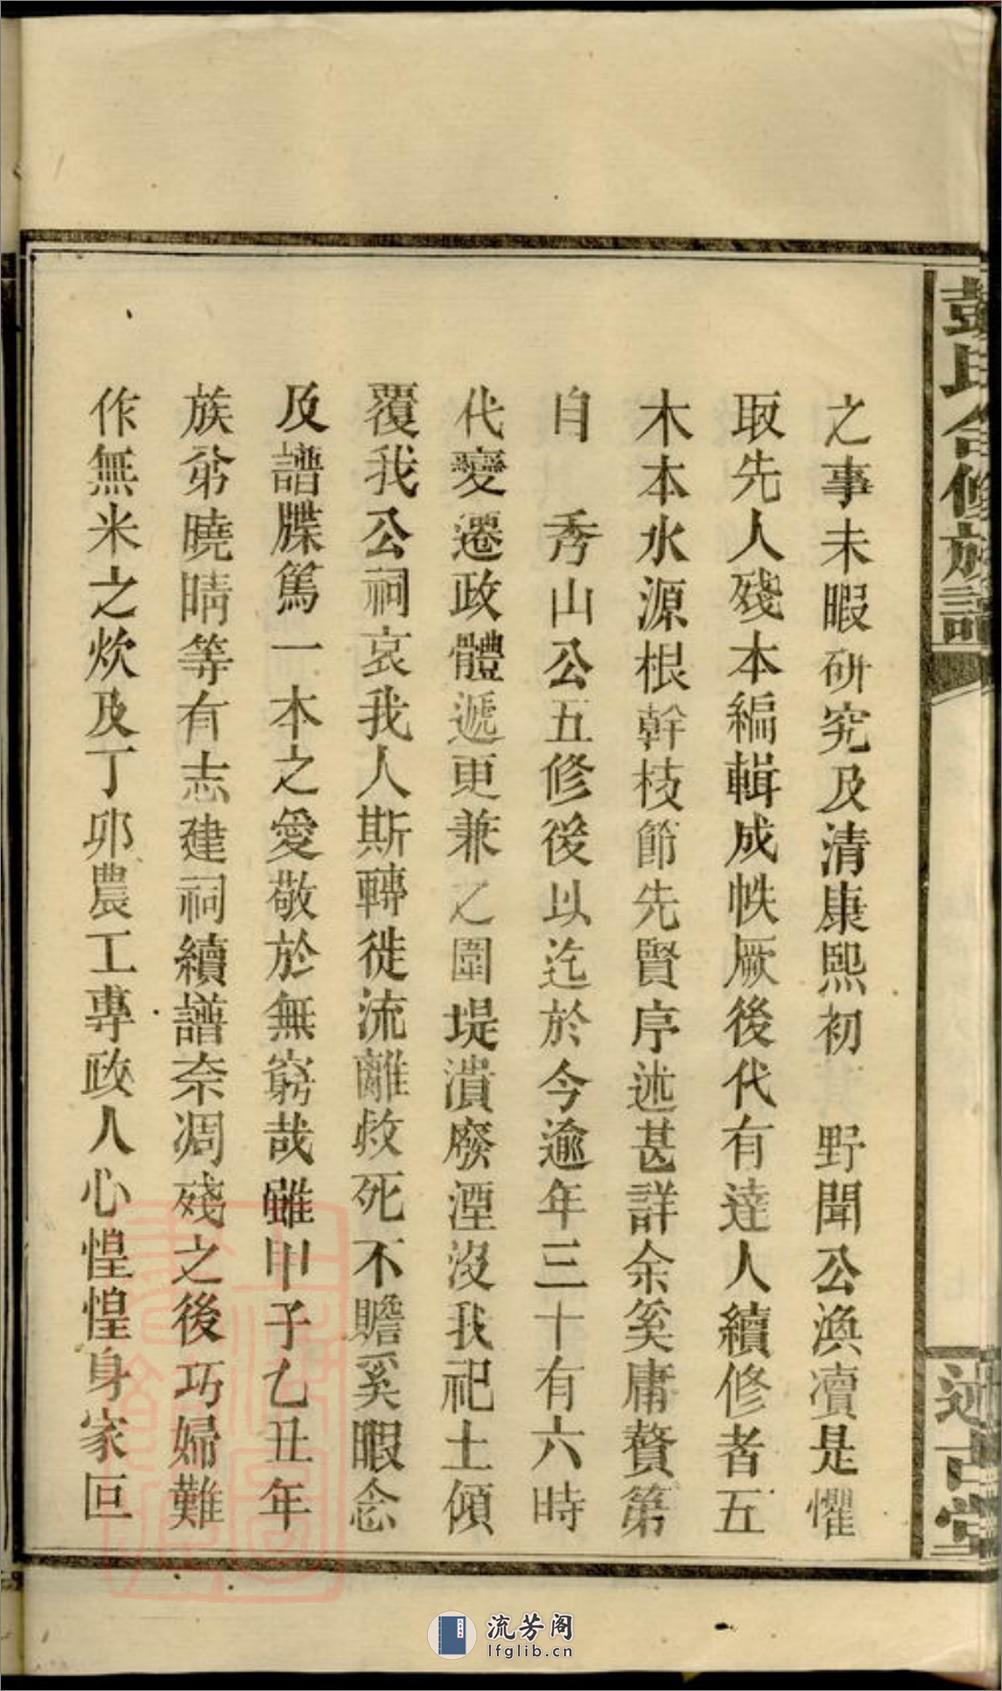 彭氏合修族譜
述古堂
之事未暇研究及清康熙初　野聞公渙瀆是懼
取先人殘本編輯成帙厥後代有達人續修者五
木本水源根幹枝節先賢序述甚詳余奚庸贅第
自　秀山公五修後以迄於今逾年三十有六時
代變遷政體遞更兼之圍堤潰廢湮沒我祀土傾
覆我公祠哀我人斯轉徙流離救死不贍奚暇念
及譜牒篤一本之愛敬於無窮哉雖甲子乙丑年
族弟曉晴等有志建祠續譜奈凋殘之後巧婦難
作無米之炊及丁卯農工專政人心惶惶身家叵
流芳阁
lfglib.cn